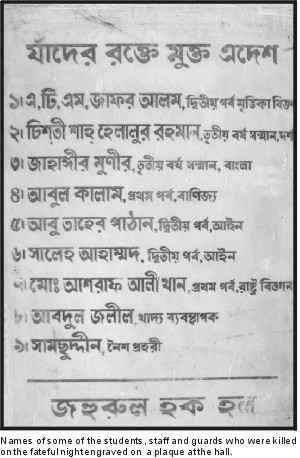 যাঁদের রক্তে মুক্ত এদেশ
১। এ,টি,এম, জাফর আলম, দ্বিতীয় পর্ব, মৃত্তিকা বিজ্ঞান
২। চিশতী শাহ্ হেলালুর রহমান, তৃতীয় বর্ষ সম্মান,
৩। জাহাঙ্গীর মুনীর, তৃতীয় বর্ষ সম্মান, বাংলা
৪। আবুল কালাম, প্রথম পর্ব, বাণিজ্য
৫। আবু তাহের পাঠান, দ্বিতীয় পর্ব, আইন
৬। সালেহ আহাম্মদ, দ্বিতীয় পর্ব, আইন
৭। মোঃ আশরাফ আলী খান, প্রথম পর্ব, রাষ্ট্র বিজ্ঞান
৮। আবদুল জলীল, খাদ্য ব্যবস্থাপক
৯। সামছুদ্দীন, নৈশ প্রহরী
জহুরুল হক হল
Names of some of the students, staff and guards who were killed
on the fateful night engraved on a plaque at the hall.